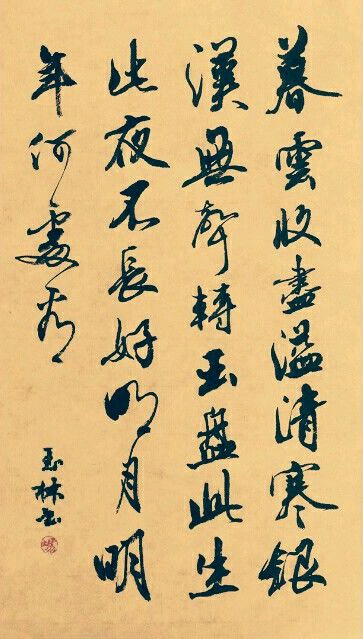 暮雲收盡溢清寒銀
漢無聲轉玉盤此生
此夜不長好明月明
年何處看
玉林書